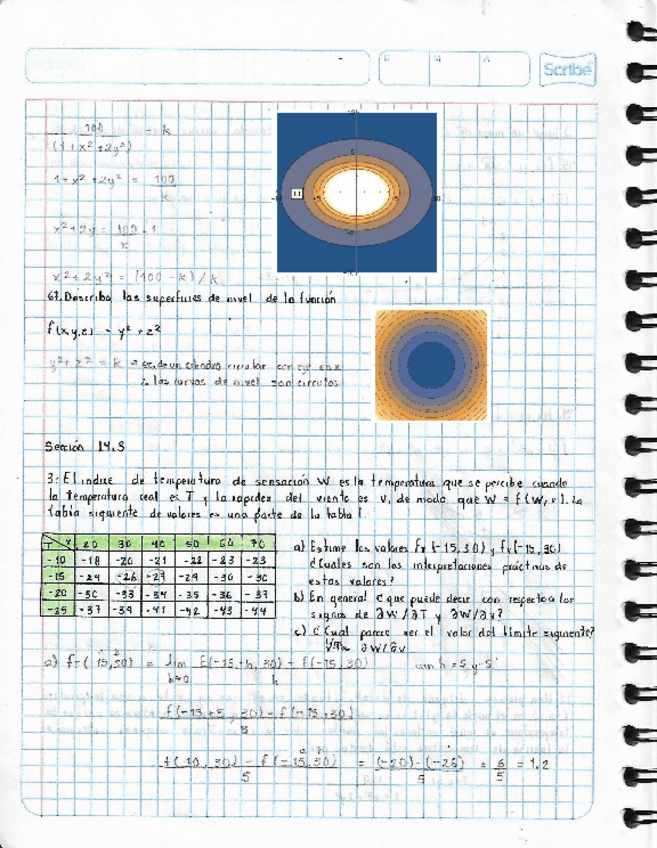 Scribe
100 = k
(1+x²+2y²)
1+x²+2y² = 100
k
x²+2y = 100 - 1
k
x²+2y² = (100-k)/k
67. Describa las superficies de nivel de la función
f(x,y,z) = y²+z²
y²+z² = k
∴ las curvas de nivel son circulos
Sección 14.3
3: El indice de temperatura de sensación W es la temperatura que se percibe cuando
la temperatura real es T y la rapidez del viento es v, de modo que W = f(W,v). La
tabla siguiente de valores es una parte de la tabla 1.
T V 20 30 40 50 60 70
-10 -18 -20 -21 -22 -23 -23
-15 -24 -26 -27 -29 -30 -30
-20 -30 -33 -34 -35 -36 -37
-25 -37 -39 -41 -42 -43 -44
a) Estime los valores fT(-15,30) y fv(-15,30)
¿Cuales son las interpretaciones prácticas de
estos valores?
b) En general ¿que puede decir con respecto a los
signos de ∂W/∂T y ∂W/∂v?
c) ¿Cual parece ser el valor del limite siguiente?
lim ∂W/∂v
a) fT(-15,30) = lim f(-15+h,30) - f(-15,30) con h=5 y -5
h→0 h
f(-15+5,30) - f(-15,30)
5
f(-10,30) - f(-15,30) = (-20)-(-26) = 6 = 1.2
5 5 5